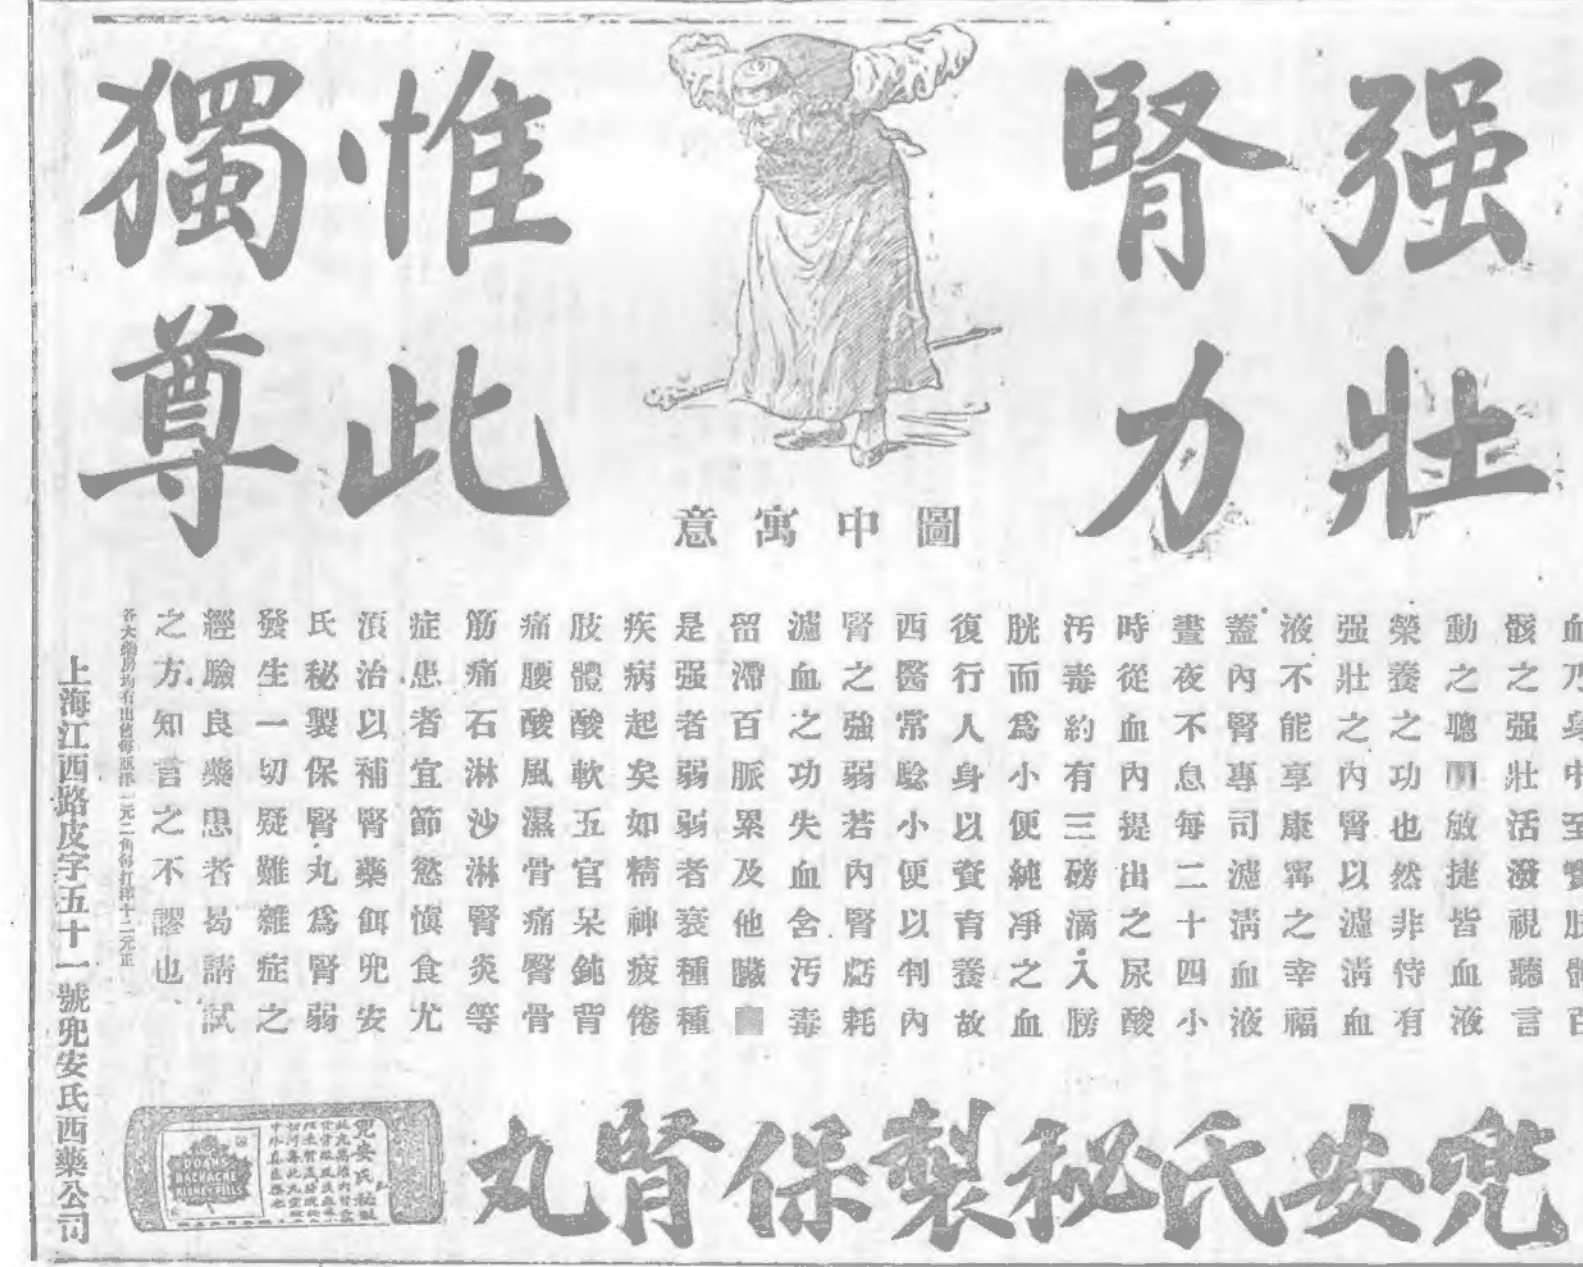 强壯
腎力
惟此
獨尊
圖中寓意
血乃身中至寶肢體百
骸之强壯活潑視聽言
動之聰明敏捷皆血液
榮養之功也然非恃有
强壯之內腎以濾淸血
液不能享康寧之幸福
蓋內腎專司濾淸血液
晝夜不息每二十四小
時從血內提出之尿酸
汚毒約有三磅滴入膀
胱而爲小便純凈之血
復行人身以資育養故
西醫常騐小便以判內
腎之強弱若內腎虧耗
濾血之功失血含汚毒
留滯百脈累及他臟
是强者弱弱者衰種種
疾病起矣如精神疲倦
肢體酸軟五官呆鈍背
痛腰酸風濕骨痛腎骨
筋痛石淋沙淋腎炎等
症患者宜節慾愼食尤
須治以補腎藥餌兜安
氏秘製保腎丸爲腎弱
發生一切疑難雜症之
經驗良藥患者曷請試
之方知言之不謬也
各大藥房均有出售每瓶洋一元二角每打洋十二元正
上海江西路皮字五十一號兜安氏西藥公司
兜安氏秘製保腎丸
兜安氏秘製
DOAN'S
BACKACHE
KIDNEY PILLS